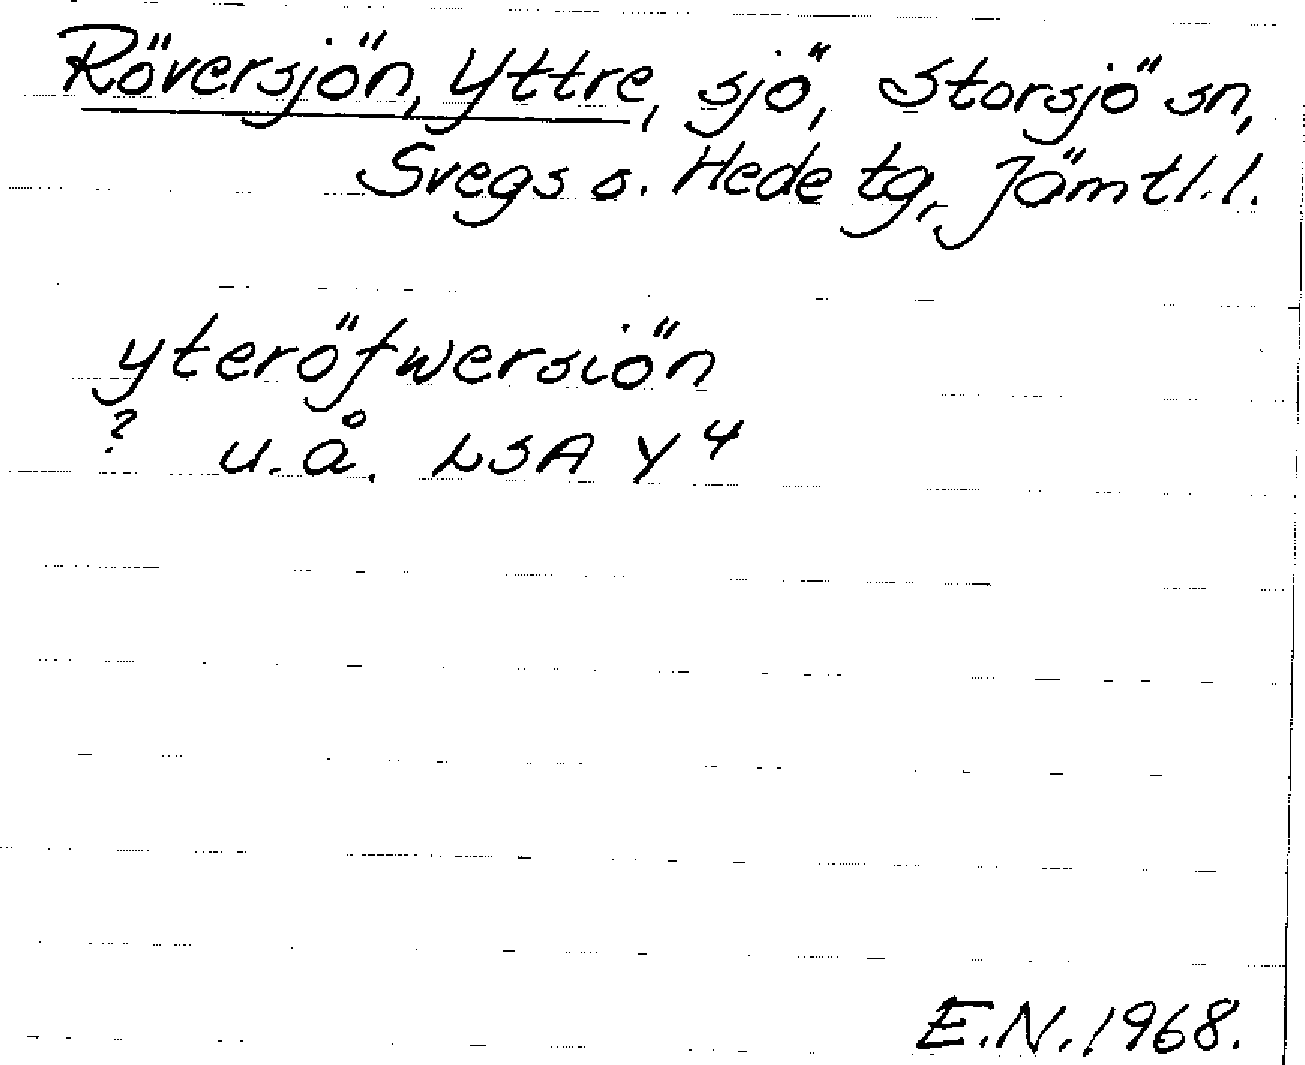 Röversjön, Yttre, sjö, Storsjö sn,
Svegs o. Hede tg, Jämtl.l.
yteröfwersiön
? u.å. LSA Y 4
E.N. 1968.